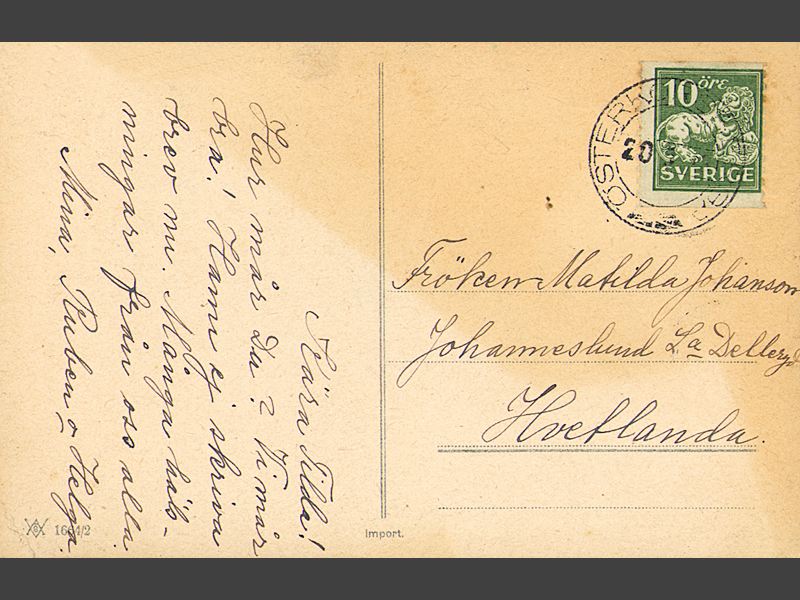 Kära Tilda!
Hur mår Du? Vi mår
bra! Hann ej skriva
brev nu. Många häls-
ningar från oss alla
Mina, Ruben o Helga.
10 öre
SVERIGE
ÖSTERK
20
Fröken Matilda Johanson
Johanneslund La Dellery
Hvetlanda.
1664/2
Import.